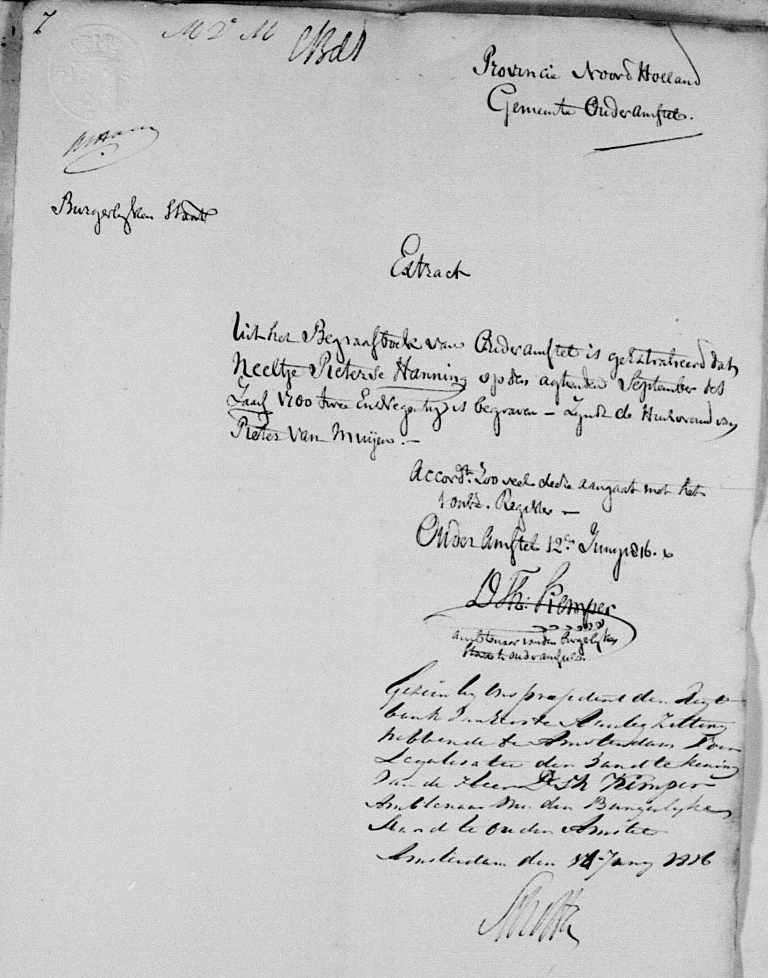 7
M D M
Provincie Noord Holland
Gemeente Ouder Amstel.
Burgerlyken Stand
Extract
Uit het Begraafboek van Ouderamstel is geëxtraheerd dat
Neeltje Pieterse Hanning op den agtienden September des
Jaars 1700 twee En Negentig is begraven – Zynde de Huisvrouw van
Pieter van Muijen. –
Accordt. Zoo veel deze aangaat met het
voorz. Register –
Ouder Amstel 12de Juny 1816.
D Th: Kemper
Ambtenaar van den Burgelyke
Stand te ouder amstel
Gezien by Ons president den Regt
bank van Eerste Aanleg Zitting
hebbende te Amsterdam Voor
Legalisatie den handtekening
Van de Heer D Th Kemper
Ambtenaar van den Burgerlyke
Stand te Ouder Amstel
Amsterdam den 14 Juny 1816